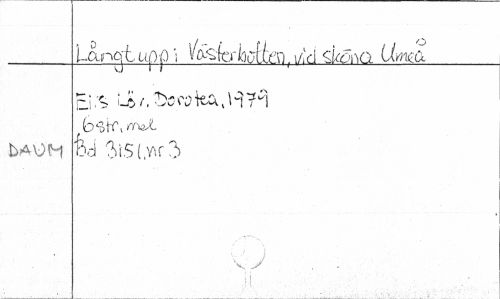 Långt uppi Västerbotten, vid sköna Umeå
Elis Löv, Dorotea, 1979
6 str, mel
DAUM Bd 3151, nr 3